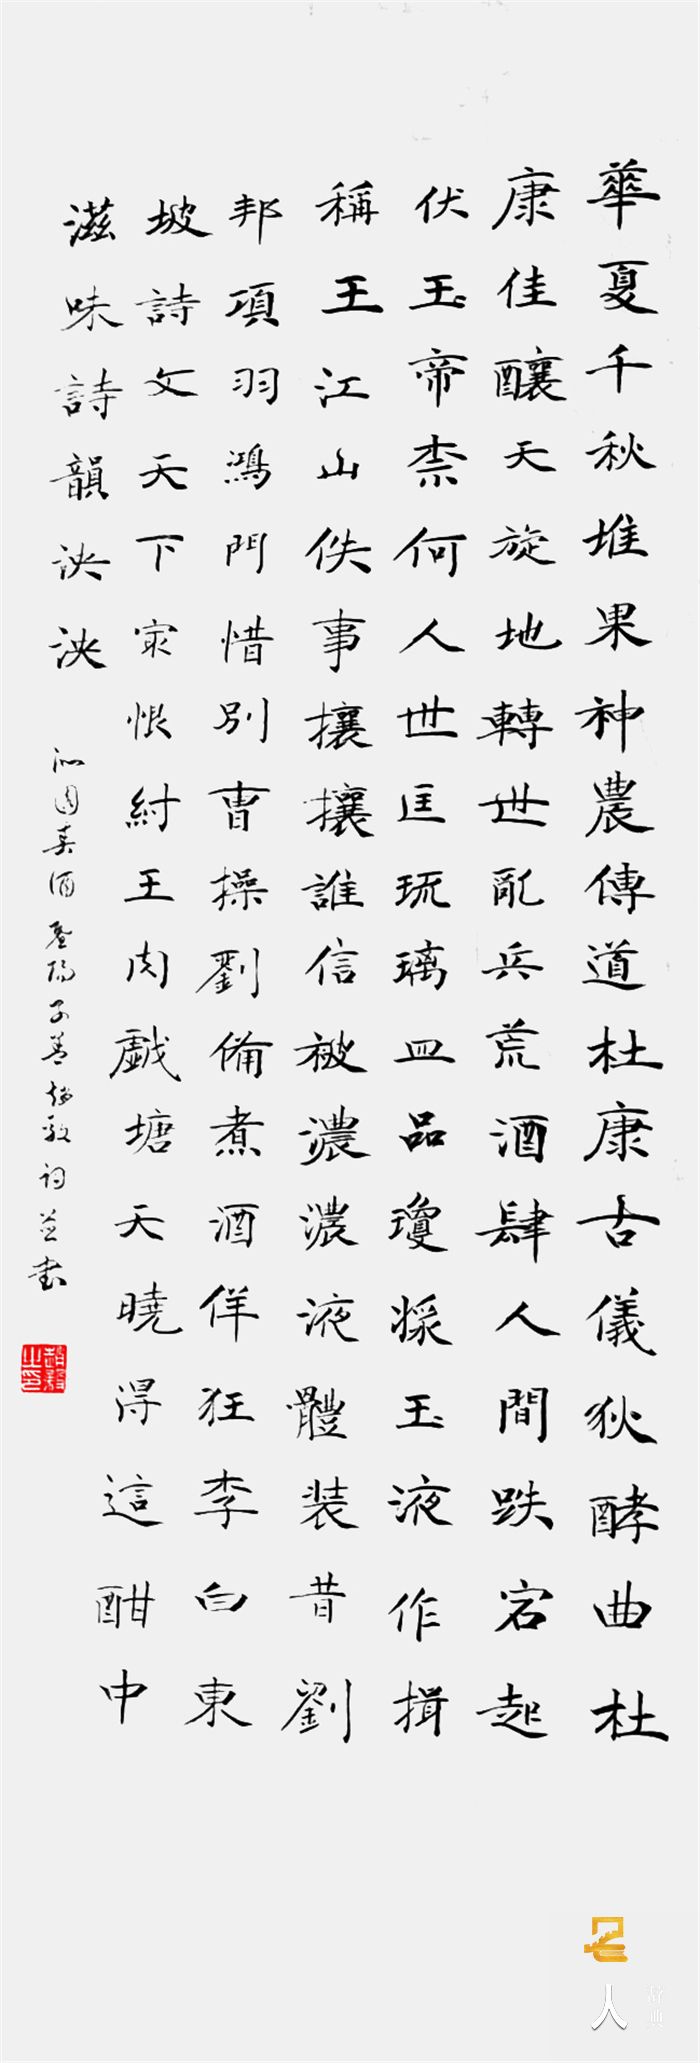 華夏千秋堆果神農傳道杜康古儀狄酵曲杜
康佳釀天旋地轉世亂兵荒酒肆人間跌宕起
伏玉帝柰何人世匡琉璃皿品瓊漿玉液作揖
稱王江山佚事攘攘誰信被濃濃液體裝昔劉
邦項羽鴻門惜別曹操劉備煮酒佯狂李白東
坡詩文天下家恨紂王肉戲塘天曉得這酣中
滋味詩韻泱泱
沁園春酒 子善 詞並書
名
人
辞典